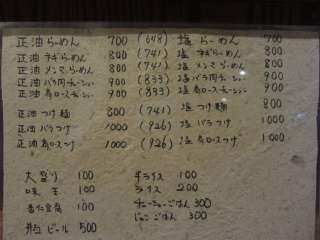 正油らーめん 700 (648) 塩らーめん 700
正油ネギらーめん 800 (741) 塩ネギらーめん 800
正油メンマらーめん 800 (741) 塩メンマらーめん 800
正油バラ肉チャーシュー 900 (833) 塩バラ肉チャーシュー 900
正油肩ロースチャーシュー 900 (833) 塩肩ロースチャーシュー 900
正油つけ麺 800 (741) 塩つけ麺 800
正油バラつけ 1000 (926) 塩バラつけ 1000
正油肩ロースつけ 1000 (926) 塩肩ロースつけ 1000
大盛り 100 半ライス 100
味玉 100 ライス 200
杏仁豆腐 100 チャーシューごはん 300
瓶ビール 500 ごはん 300